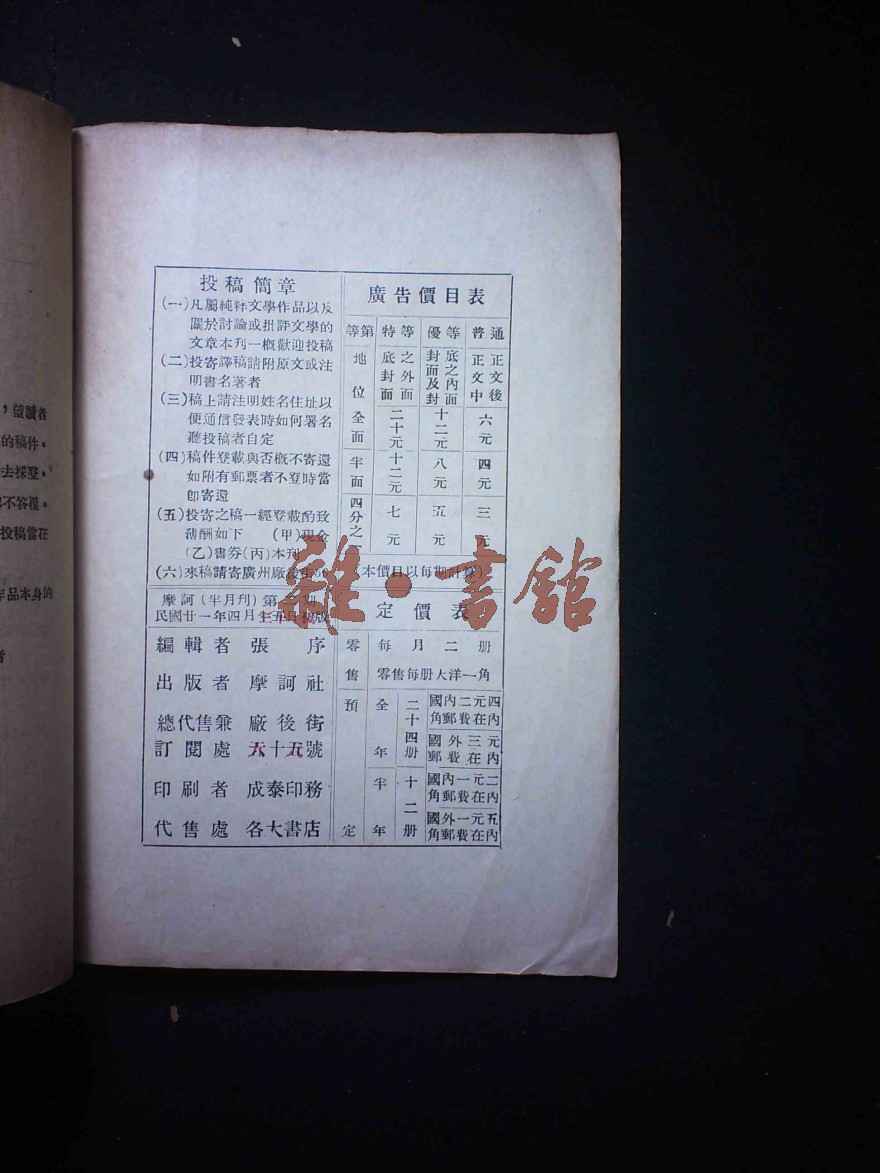 ，望讀者
的稿件。
去採登。
不答覆。
投稿當在
品本身的
者
投稿簡章
(一)凡屬純粹文學作品以及
關於討論或批評文學的
文章本刊一概歡迎投稿
(二)投寄譯稿請附原文或注
明書名著者
(三)稿上請注明姓名住址以
便通信發表時如何署名
聽投稿者自定
(四)稿件登載與否概不寄還
如附有郵票者不登時當
卽寄還
(五)投寄之稿一經登載酌致
薄酬如下 (甲)現金
(乙)書券(丙)本刊
(六)來稿請寄廣州廠後街
廣告價目表
等第 特等 優等 普通
地位 底封面之外面 封面及封底之內面 正文中正文後
全面 二十元 十二元 六元
半面 十二元 八元 四元
四分之 七元 五元 三元
(本價目以每期計算)
雜·書館
摩訶(半月刊)第 期
民國廿一年四月 五日 版
編輯者 張序
出版者 摩訶社
總代售兼 廠後街
訂閱處 五十五號
印刷者 成泰印務
代售處 各大書店
定價表
零售 每月二册
零售每册大洋一角
預定 全年 二十四册 國內二元四角郵費在內
國外三元郵費在內
半年 十二册 國內一元二角郵費在內
國外一元五角郵費在內